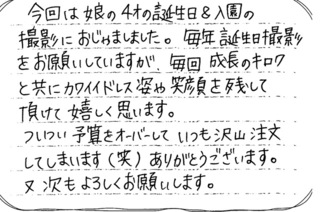 今回は娘の4才の誕生日&入園の
撮影におじゃましました。毎年誕生日撮影
をお願いしていますが、毎回成長のキロク
と共にカワイイドレス姿や笑顔を残して
頂けて嬉しく思います。
ついつい予算をオーバーしていつも沢山注文
してしまいます(笑)ありがとうございます。
又次もよろしくお願いします。